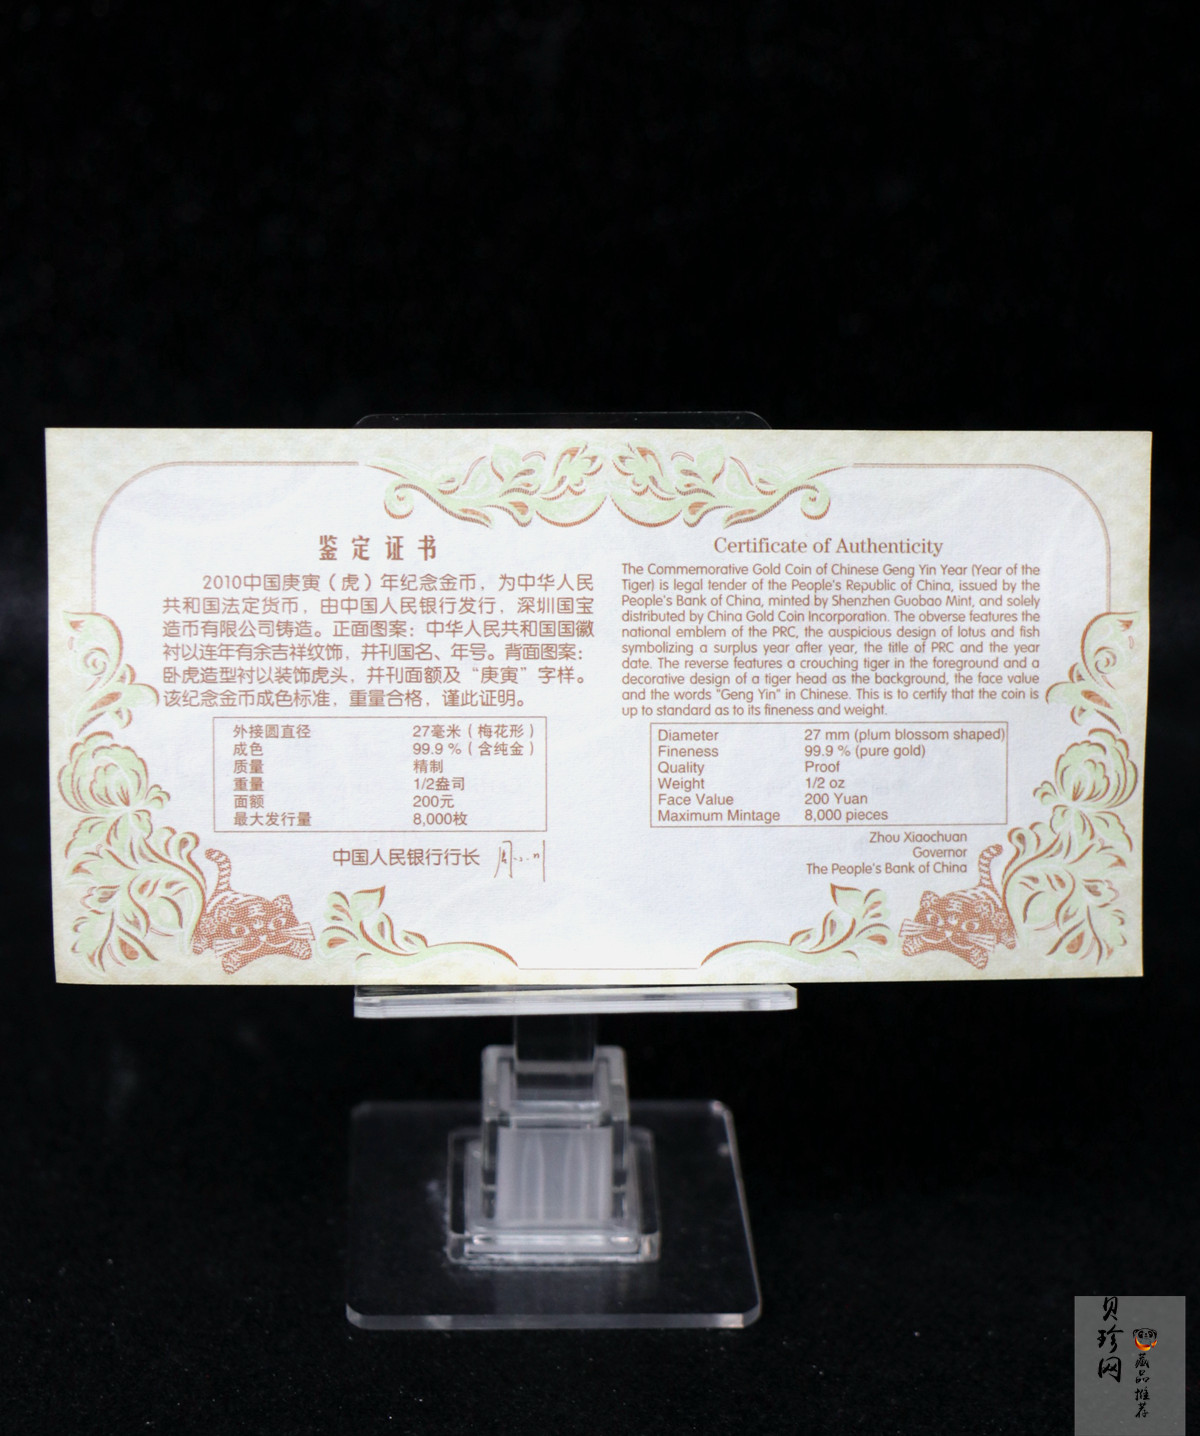 鉴定证书
2010中国庚寅（虎）年纪念金币，为中华人民
共和国法定货币，由中国人民银行发行，深圳国宝
造币有限公司铸造。正面图案：中华人民共和国国徽
衬以连年有余吉祥纹饰，并刊国名、年号。背面图案：
卧虎造型衬以装饰虎头，并刊面额及“庚寅”字样。
该纪念金币成色标准，重量合格，谨此证明。
外接圆直径 27毫米（梅花形）
成色 99.9％（含纯金）
质量 精制
重量 1/2盎司
面额 200元
最大发行量 8,000枚
中国人民银行行长
Certificate of Authenticity
The Commemorative Gold Coin of Chinese Geng Yin Year (Year of the
Tiger) is legal tender of the People's Republic of China, issued by the
People's Bank of China, minted by Shenzhen Guobao Mint, and solely
distributed by China Gold Coin Incorporation. The obverse features the
national emblem of the PRC, the auspicious design of lotus and fish
symbolizing a surplus year after year, the title of PRC and the year
date. The reverse features a crouching tiger in the foreground and a
decorative design of a tiger head as the background, the face value
and the words "Geng Yin" in Chinese. This is to certify that the coin is
up to standard as to its fineness and weight.
Diameter 27 mm (plum blossom shaped)
Fineness 99.9 % (pure gold)
Quality Proof
Weight 1/2 oz
Face Value 200 Yuan
Maximum Mintage 8,000 pieces
Zhou Xiaochuan
Governor
The People's Bank of China
贝珍网
藏品推荐